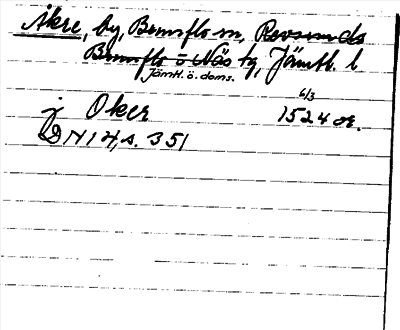 Åkre, by, Brunflo sn, Revsunds
Brunflo o Näs tg, Jämtl. l
Jämtl. ö. doms.
j Oker 6/3 1524 or.
DN 14, s. 351